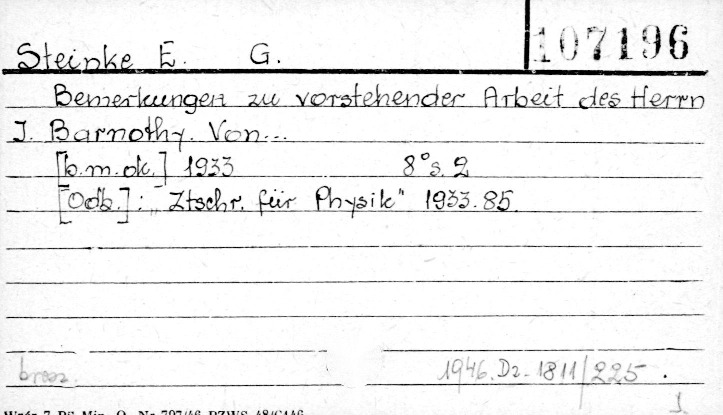 Steinke E. G. 107196
Bemerkungen zu vorstehender Arbeit des Herrn
J. Barnothy. Von...
[b.m.ok.] 1933 8° s. 2
[Odb.]: „Ztschr. für Physik" 1933.85.
brosz.
1946.Dz-1811/225.
Wzór 7 PS Min. O. Nr 797/46 PZWS 48/6146